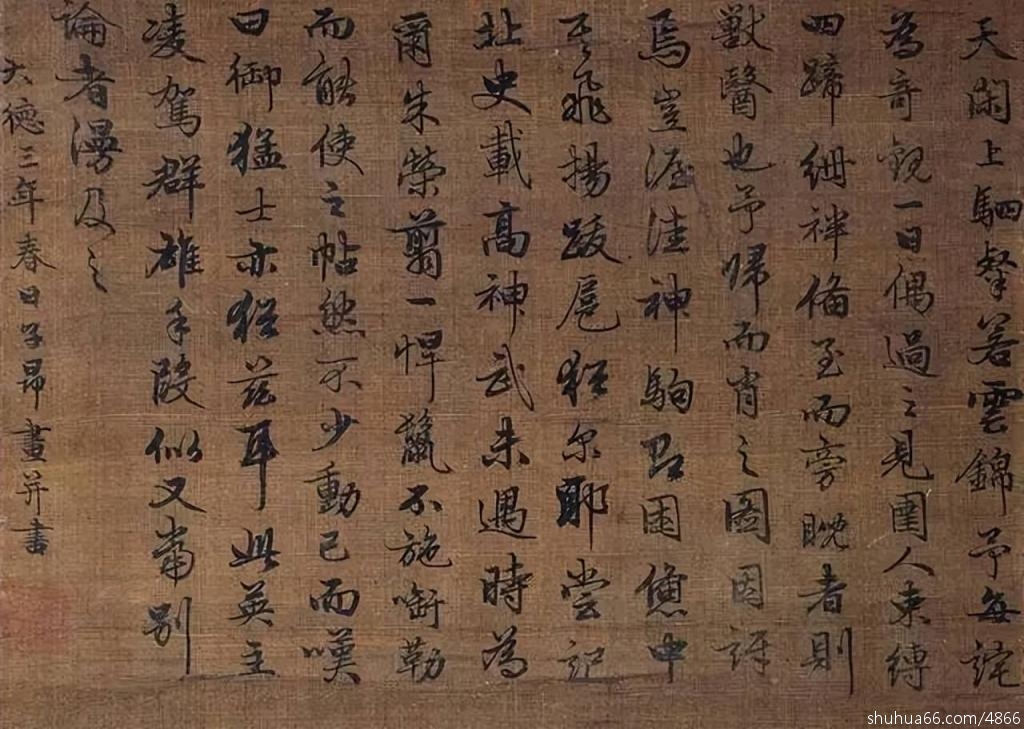 天閑上駟群若雲錦予每詫
為奇觀一日偶過之見圉人束縛
四蹄絒袢備至而旁睨者則
獸醫也予歸而肖之圖因訝
焉豈渥洼神駒羈困億中
其飛揚跋扈猶尔耶嘗記
北史載高神武未遇時為
爾朱榮翦一悍鬣不施銜勒
而能使之帖然不少動已而嘆
曰御猛士亦猶茲耳此英主
凌駕群雄手段似又當別
論者漫及之
大德三年春日子昂畫并書
shuhua66.com/4866